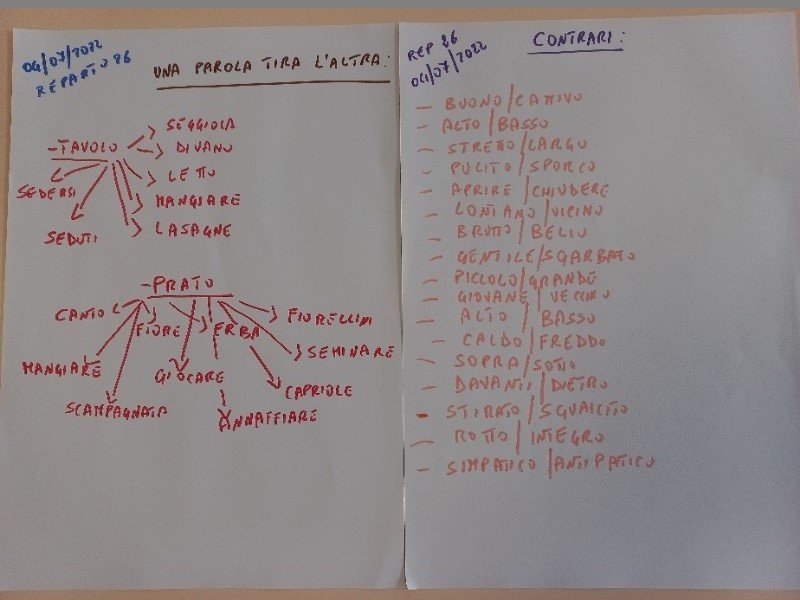 04/07/2022
REPARTO 26
UNA PAROLA TIRA L'ALTRA:
-TAVOLO
SEGGIOLA
DIVANO
LETTO
MANGIARE
LASAGNE
SEDERSI
SEDUTI
-PRATO
CANTO
FIORE
ERBA
FIORELLINI
MANGIARE
GIOCARE
SEMINARE
SCAMPAGNATA
CAPRIOLE
ANNAFFIARE
REP 26
04/07/2022
CONTRARI:
- BUONO/CATTIVO
- ALTO/BASSO
- STRETTO/LARGO
- PULITO/SPORCO
- APRIRE/CHIUDERE
- LONTANO/VICINO
- BRUTTO/BELLO
- GENTILE/SGARBATO
- PICCOLO/GRANDE
- GIOVANE/VECCHIO
- ALTO/BASSO
- CALDO/FREDDO
- SOPRA/SOTTO
- DAVANTI/DIETRO
- STIRATO/SGUALCITO
- ROTTO/INTEGRO
- SIMPATICO/ANTIPATICO